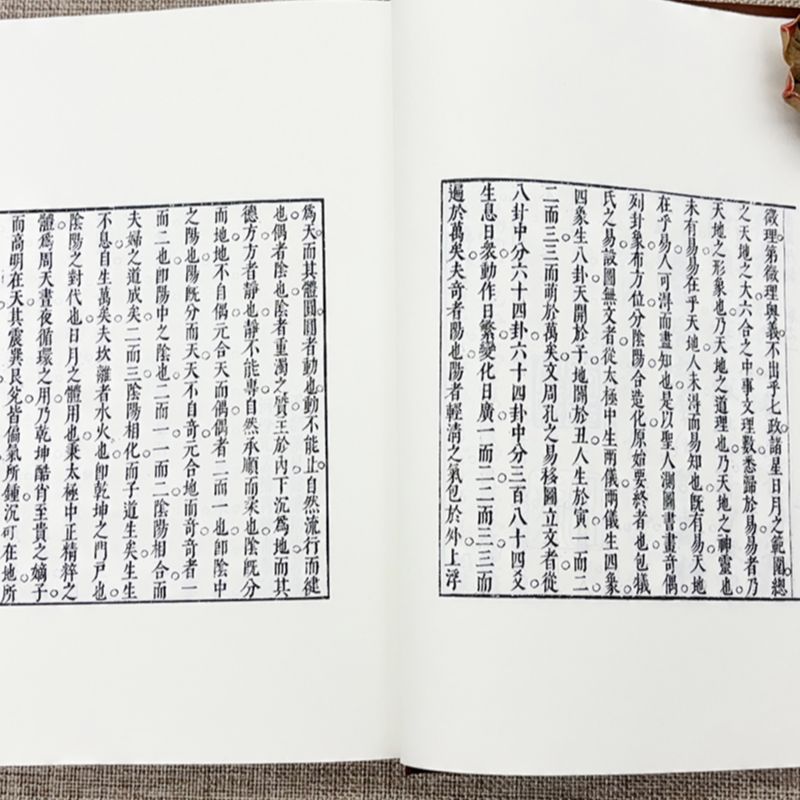 徵理第徵理奧義不出乎七政諸星日月之範圍總
之天地之大六合之中事文理數悉歸於易易者乃
天地之形象也乃天地之道理也乃天地之神靈也
未有易易在乎天地人未得而易知也既有易天地
在乎易人可得而盡知也是以聖人測圖書畫奇偶
列卦象布方位分陰陽合造化原始要終者也包犧
氏之易設圖無文者從太極中生兩儀兩儀生四象
四象生八卦天開於子地闢於丑人生於寅一而二
二而三三而萌於萬矣文周孔之易移圖立文者從
八卦中分六十四卦六十四卦中分三百八十四爻
生息日衆動作日繁變化日廣一而二二而三三而
遍於萬矣夫奇者陽也陽者輕清之氣包於外上浮
爲天而其體圓圓者動也動不能止自然流行而健
也偶者陰也陰者重濁之質王於內下沉爲地而其
德方方者靜也靜不能專自然承順而柔也陰既分
而地地不自偶元合天而偶偶者二而一也卽陰中
之陽也陽既分而天天不自奇元合地而奇奇者一
而二也卽陽中之陰也二而一一而二陰陽相合而
夫婦之道成矣二而三陰陽相化而子道生矣生生
不息自生萬矣夫坎離者水火也卽乾坤之門戸也
陰陽之對代也日月之體用也秉太極中正精粹之
體爲周天晝夜循環之用乃乾坤酷肖至貴之嫡子
而高明在天其震巽艮兌皆偏氣所鍾沉可在地所